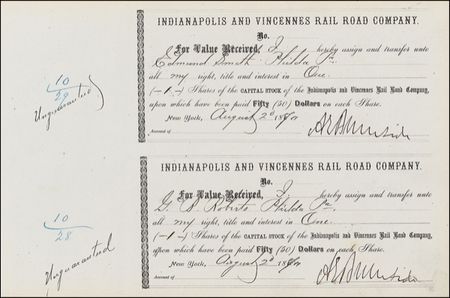 INDIANAPOLIS AND VINCENNES RAIL ROAD COMPANY.
No.
For Value Received, I hereby assign and transfer unto
Edmund Smith Philada Pa
all my right, title and interest in One
(—1—) Shares of the CAPITAL STOCK of the Indianapolis and Vincennes Rail Road Company,
upon which have been paid Fifty (50) Dollars on each Share.
New York, August 2d 18
Account of
10
29
Unguaranteed
INDIANAPOLIS AND VINCENNES RAIL ROAD COMPANY.
No.
For Value Received, I hereby assign and transfer unto
G B Roberts Philada Pa
all my right, title and interest in One
(—1—) Shares of the CAPITAL STOCK of the Indianapolis and Vincennes Rail Road Company,
upon which have been paid Fifty (50) Dollars on each Share.
New York, August 2d 18
Account of
10
28
Unguaranteed